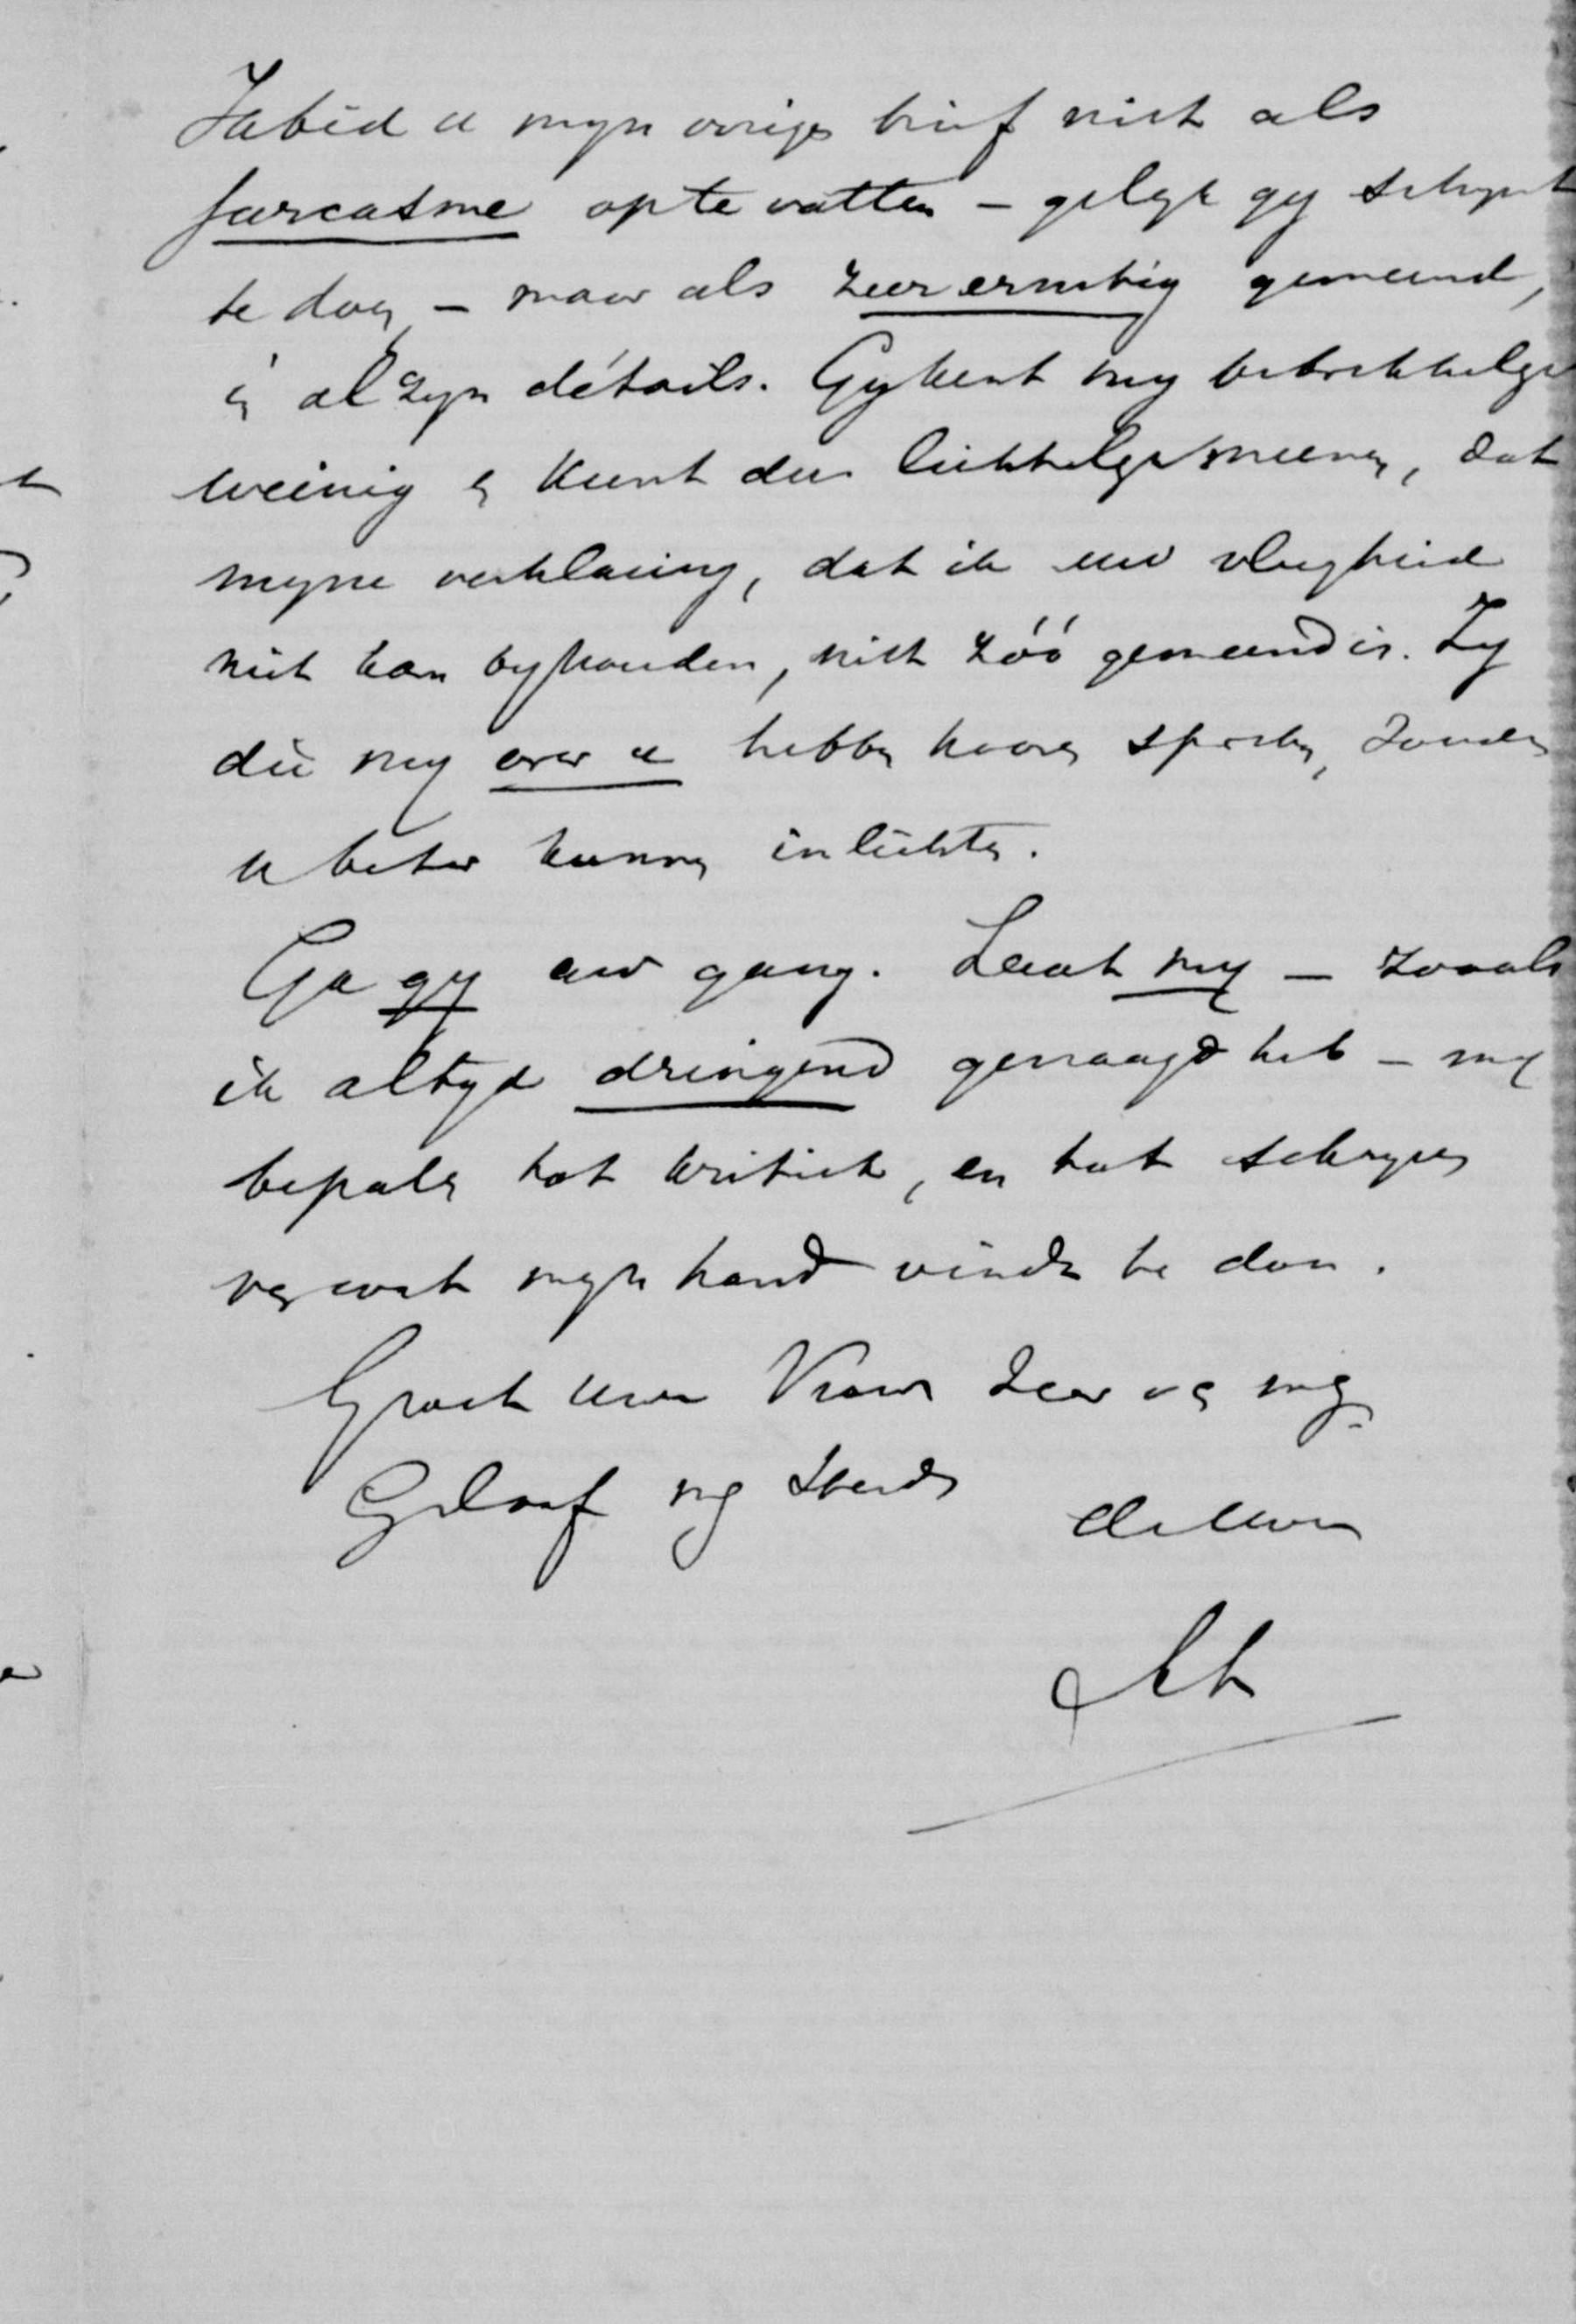 Ik bid u myn vorige brief niet als
sarcasme op te vatten – gelyk gy schynt
te doen – maar als zeer ernstig gemeend,
in al zyn détails. Gy kent my betrekkelyk
weinig en kunt dus lichtelyk meenen, dat
myne verklaring, dat ik uw vlugheid
niet kan byhouden, niet zóó gemeend is. Zy
die my over u hebben hooren spreken, zouden
u beter kunnen inlichten.
Ga gy uw gang. Laat my – zooals
ik altyd dringend gevraagd heb – my
bepalen tot kritiek, en tot schryven
van wat myn hand vindt te doen.
Groet uwe Vrouw zeer van my.
Geloof my steeds de uwe